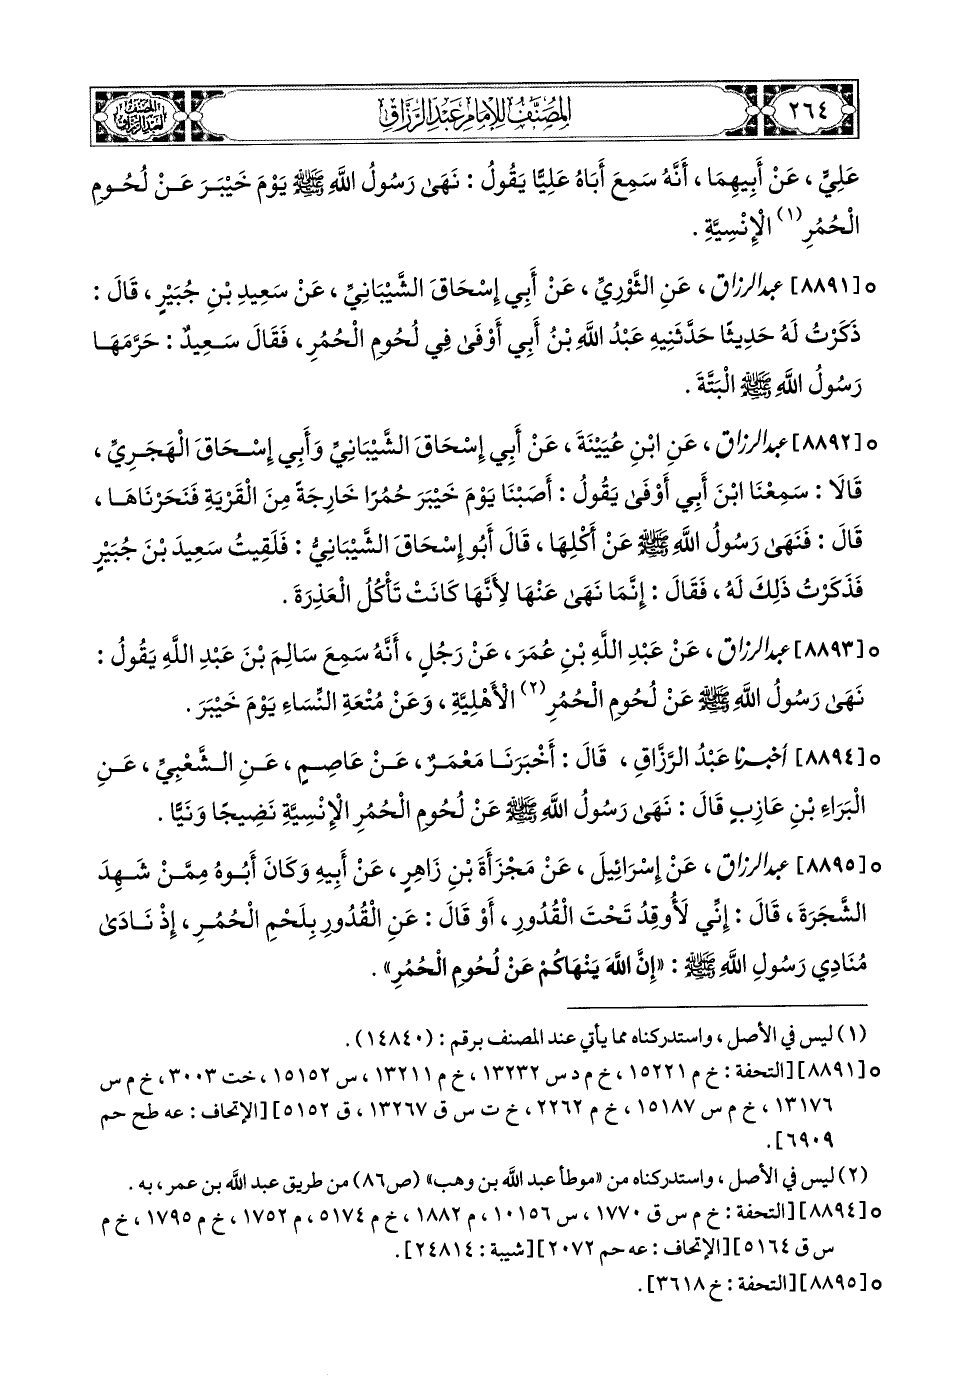 ٢٦٤
المصنف للإمام عبد الرزاق
المصنف لعبد الرزاق
عَلِيٍّ ، عَنْ أَبِيهِمَا ، أَنَّهُ سَمِعَ أَبَاهُ عَلِيًّا يَقُولُ : نَهَىٰ رَسُولُ اللَّهِ ﷺ يَوْمَ خَيْبَرَ عَنْ لُحُومِ
الْحُمُرِ(١) الْإِنْسِيَّةِ .
○ [٨٨٩١] عبد الرزاق ، عَنِ الثَّوْرِيِّ ، عَنْ أَبِي إِسْحَاقَ الشَّيْبَانِيِّ ، عَنْ سَعِيدِ بْنِ جُبَيْرٍ ، قَالَ :
ذَكَرْتُ لَهُ حَدِيثًا حَدَّثَنِيهِ عَبْدُ اللَّهِ بْنُ أَبِي أَوْفَىٰ فِي لُحُومِ الْحُمُرِ ، فَقَالَ سَعِيدٌ : حَرَّمَهَا
رَسُولُ اللَّهِ ﷺ الْبَتَّةَ .
○ [٨٨٩٢] عبد الرزاق ، عَنِ ابْنِ عُيَيْنَةَ ، عَنْ أَبِي إِسْحَاقَ الشَّيْبَانِيِّ وَأَبِي إِسْحَاقَ الْهَجَرِيِّ ،
قَالَا : سَمِعْنَا ابْنَ أَبِي أَوْفَىٰ يَقُولُ : أَصَبْنَا يَوْمَ خَيْبَرَ حُمُرًا خَارِجَةً مِنَ الْقَرْيَةِ فَنَحَرْنَاهَا ،
قَالَ : فَنَهَىٰ رَسُولُ اللَّهِ ﷺ عَنْ أَكْلِهَا ، قَالَ أَبُو إِسْحَاقَ الشَّيْبَانِيُّ : فَلَقِيتُ سَعِيدَ بْنَ جُبَيْرٍ
فَذَكَرْتُ ذَلِكَ لَهُ ، فَقَالَ : إِنَّمَا نَهَىٰ عَنْهَا لِأَنَّهَا كَانَتْ تَأْكُلُ الْعَذِرَةَ .
○ [٨٨٩٣] عبد الرزاق ، عَنْ عَبْدِ اللَّهِ بْنِ عُمَرَ ، عَنْ رَجُلٍ ، أَنَّهُ سَمِعَ سَالِمَ بْنَ عَبْدِ اللَّهِ يَقُولُ :
نَهَىٰ رَسُولُ اللَّهِ ﷺ عَنْ لُحُومِ الْحُمُرِ(٢) الْأَهْلِيَّةِ ، وَعَنْ مُتْعَةِ النِّسَاءِ يَوْمَ خَيْبَرَ .
○ [٨٨٩٤] أخبرنا عَبْدُ الرَّزَّاقِ ، قَالَ : أَخْبَرَنَا مَعْمَرٌ ، عَنْ عَاصِمٍ ، عَنِ الشَّعْبِيِّ ، عَنِ
الْبَرَاءِ بْنِ عَازِبٍ قَالَ : نَهَىٰ رَسُولُ اللَّهِ ﷺ عَنْ لُحُومِ الْحُمُرِ الْإِنْسِيَّةِ نَضِيجًا وَنَيًّا .
○ [٨٨٩٥] عبد الرزاق ، عَنْ إِسْرَائِيلَ ، عَنْ مَجْزَأَةَ بْنِ زَاهِرٍ ، عَنْ أَبِيهِ وَكَانَ أَبُوهُ مِمَّنْ شَهِدَ
الشَّجَرَةَ ، قَالَ : إِنِّي لَأُوقِدُ تَحْتَ الْقُدُورِ ، أَوْ قَالَ : عَنِ الْقُدُورِ بِلَحْمِ الْحُمُرِ ، إِذْ نَادَىٰ
مُنَادِي رَسُولِ اللَّهِ ﷺ : «إِنَّ اللَّهَ يَنْهَاكُمْ عَنْ لُحُومِ الْحُمُرِ» .
(١) ليس في الأصل ، واستدركناه مما يأتي عند المصنف برقم : (١٤٨٤٠) .
○ [٨٨٩١] [التحفة : خ م ١٥٢٢١ ، خ م د س ١٣٢٣٢ ، خ م ١٣٢١١ ، س ١٥١٥٢ ، خت ٣٠٠٣ ، خ م س
١٣١٧٦ ، خ م س ١٥١٨٧ ، خ م ٢٢٦٢ ، خ ت س ق ١٣٢٦٧ ، ق ٥١٥٢] [الإتحاف : عه طح حم
٦٩٠٩] .
(٢) ليس في الأصل ، واستدركناه من «موطأ عبد الله بن وهب» (ص٨٦) من طريق عبد الله بن عمر ، به .
○ [٨٨٩٤] [التحفة : خ م س ق ١٧٧٠ ، س ١٠١٥٦ ، م ١٨٨٢ ، خ م ٥١٧٤ ، م ١٧٥٢ ، خ م ١٧٩٥ ، خ م
س ق ٥١٦٤] [الإتحاف : عه حم ٢٠٧٢] [شيبة : ٢٤٨١٤] .
○ [٨٨٩٥] [التحفة : خ ٣٦١٨] .